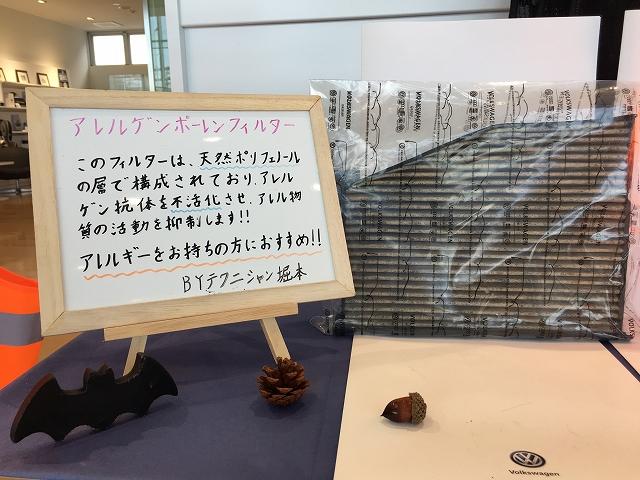 アレルゲンポーレンフィルター
このフィルターは、天然ポリフェノール
の層で構成されており、アレル
ゲン抗体を不活化させ、アレル物
質の活動を抑制します!!
アレルギーをお持ちの方におすすめ!!
BYテクニシャン堀本
VOLKSWAGEN
Volkswagen